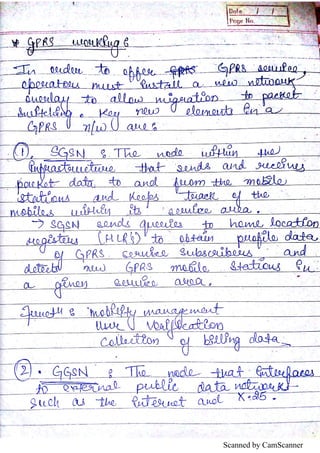 Date / /
Page No.
* GPRS working :
In order to offer GPRS service,
operators must install a new network
overlay to allow migration to packet
switching. Key new elements in a
GPRS n/w are :
(1). SGSN : The node within the
infrastructure that sends and receives
packet data, to and from the mobile
stations and keeps track of the
mobiles within its service area.
→ SGSN sends queries to home location
registers (HLR's) to obtain profile data
of GPRS service subscribers and
detects new GPRS mobile stations in
a given service area.
Funct's : mobility management
User Verification
Collection of billing data.
(2). GGSN : The node that interfaces
to external public data network
such as the internet and X-25.
Scanned by CamScanner